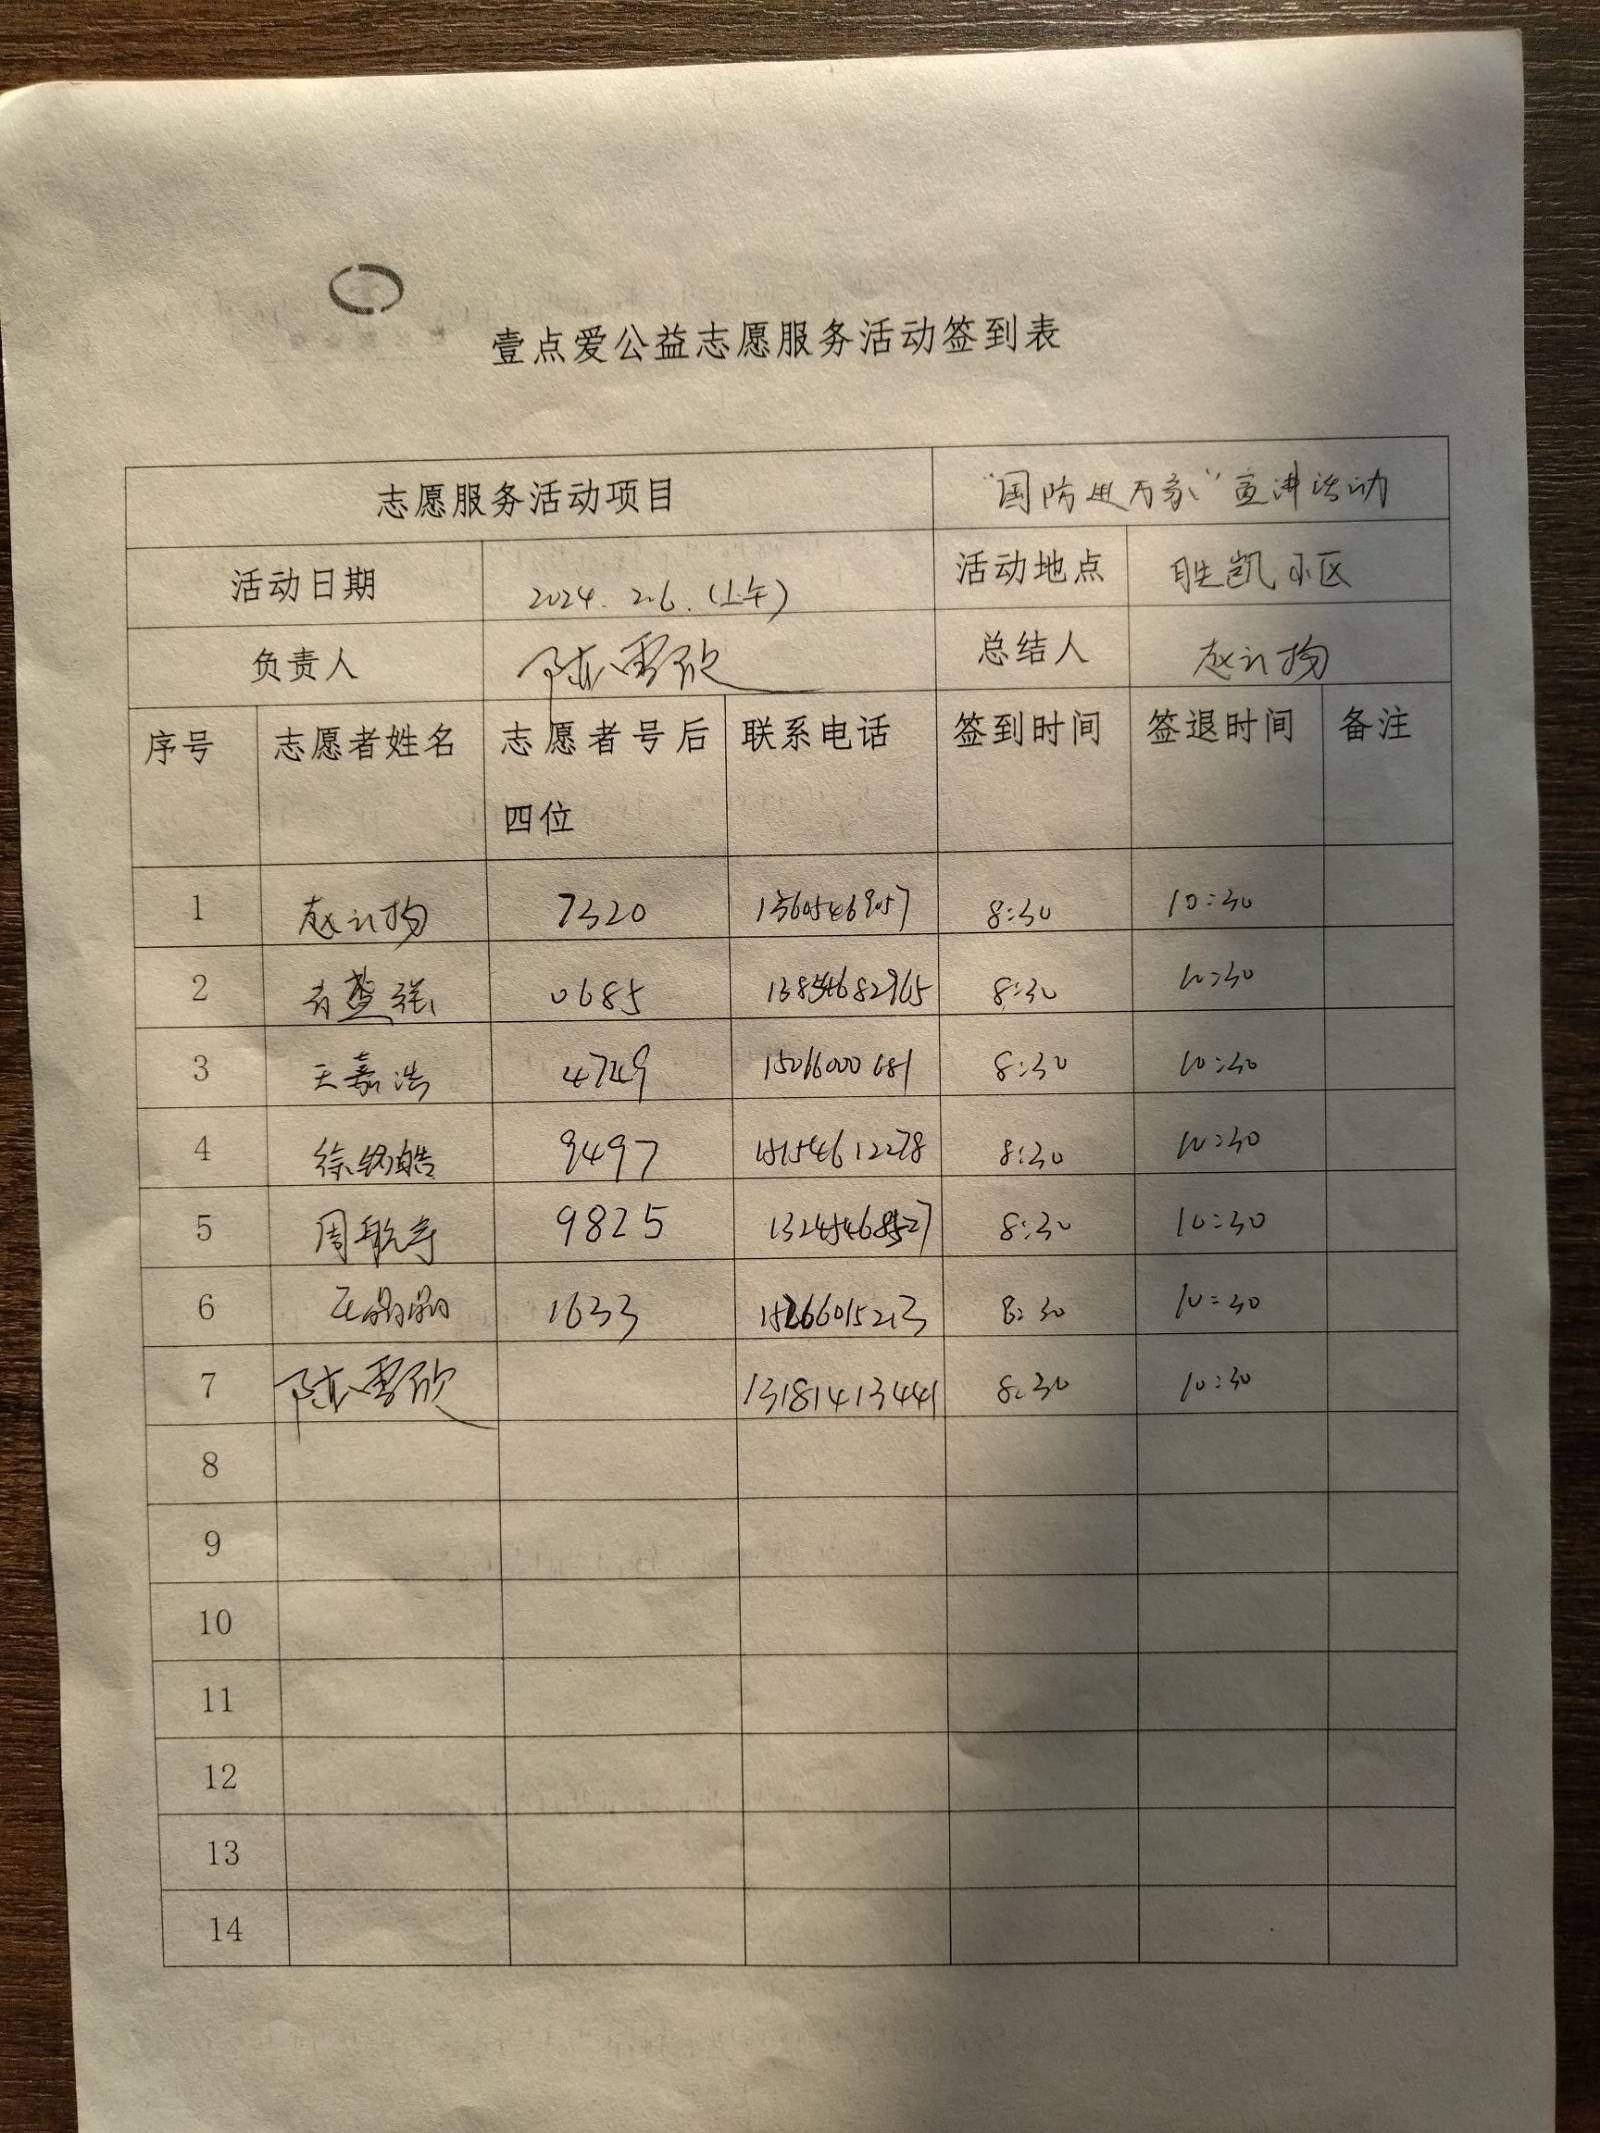 壹点爱公益志愿服务活动签到表
志愿服务活动项目 "国防进万家"宣讲活动
活动日期 2024. 2.6.(上午) 活动地点 胜凯小区
负责人 陈雪欣 总结人 赵云扬
序号 志愿者姓名 志愿者号后 联系电话 签到时间 签退时间 备注
四位
1 赵云扬 7320 13605469057 8:30 10:30
2 0685 13854682965 8:30 10:30
3 王嘉浩 4749 15066000681 8:30 10:30
4 徐铭皓 9497 18154612278 8:30 10:30
5 周航宇 9825 13245468527 8:30 10:30
6 王晶晶 1633 15266015213 8:30 10:30
7 陈雪欣 13181413441 8:30 10:30
8
9
10
11
12
13
14